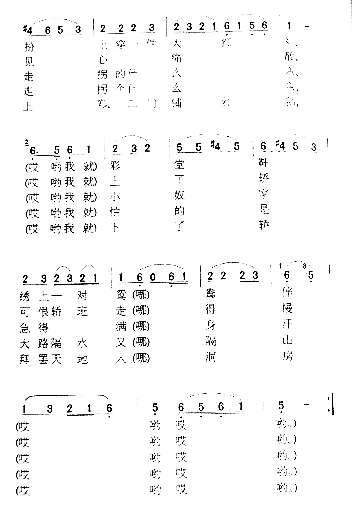 #4 6 5 3 2 2 2 3 5 6 5 6 1 -
扮 上 穿 一 件 大 红
见 心 痛
走 拐的什 么
走 拐个什 么
上
6. 5 6 1 2 3 2 5 5 #4 5 #4 5 3
(哎 哟我 就) 彩 堂 鞋
(哎 哟我 就) 上 了 轿
(哎 哟我 就) 小 奴 家
(哎 哟我 就) 怕 的 是
(哎 哟我 就) 下 了 轿
2 3 2 3 2 1 1 6 0 6 1 2 2 2 3 6 5
绣 上 一 对 鸳(哪) 鸯 伴
可 恨 轿 班 走(哪) 得 慢
急 得 满(哪) 身 汗
大 路 隔 水 又(哪) 隔 山
拜 罢 天 地 入(哪) 洞 房
1 3 2 1 6 5 6 5 6 1 5 - :‖
(哎 哟 哎 哟。)
(哎 哟 哎 哟。)
(哎 哟 哎 哟。)
(哎 哟 哎 哟。)
(哎 哟 哎 哟。)